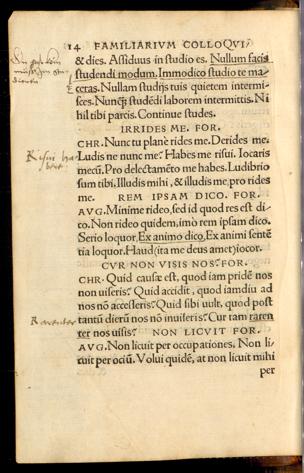 14 FAMILIARIVM COLLOQVI/
& dies. Assiduus in studio es. Nullum facis
studendi modum. Immodico studio te ma/
ceras. Nullam studijs tuis quietem intermi/
sces. Nunq̃ studẽdi laborem intermittis. Ni
hil tibi parcis. Continue studes.
IRRIDES ME. FOR.
CHR. Nunc tu planè rides me. Derides me.
Ludis ne nunc me? Habes me risui. Iocaris
mecũ. Pro delectamẽto me habes. Ludibrio
sum tibi. Illudis mihi, & illudis me, pro rides
me. REM IPSAM DICO. FOR.
AVG. Minime rideo, sed id quod res est di/
co. Non rideo quidem, imò rem ipsam dico.
Serio loquor, Ex animo dico, Ex animi sentẽ
tia loquor. Haud (ita me deus amet) iocor.
CVR NON VISIS NOS? FOR.
CHR. Quid causæ est, quod iam pridẽ nos
non uiseris? Quid accidit, quod iamdiu ad
nos nõ accesseris? Quid sibi uult, quod post
tantũ dierũ nos nõ inuiseris? Cur tam raren
ter nos uisis? NON LICVIT FOR.
AVG. Non licuit per occupationes. Non li/
cuit per ociũ. Volui quidẽ, at non licuit mihi
per
Rarenter